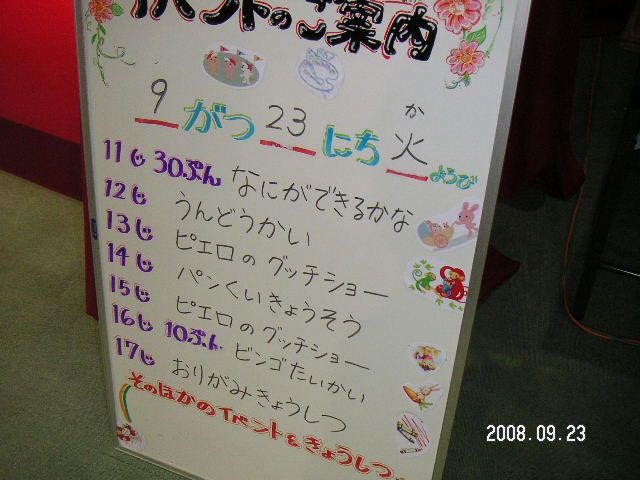 イベントのご案内
9がつ23にち火ようび
か
11じ30ぷん なにができるかな
12じ うんどうかい
13じ ピエロのグッチショー
14じ パンくいきょうそう
15じ ピエロのグッチショー
16じ10ぷん ビンゴたいかい
17じ おりがみきょうしつ
そのほかのイベント&きょうしつ
2008.09.23